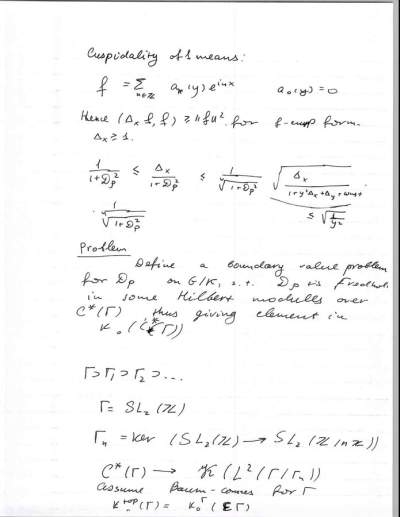 Cuspidality of f means:
f = Σ_{n∈ℤ} a_n(y) e^{inx}    a_0(y) = 0
Hence (Δ_x f, f) ≥ ‖f‖² for f-cusp form.
Δ_x ≥ 1.
1/(1+D_p²) ≤ Δ_x/(1+D_p²) ≤ 1/√(1+D_p²) √(Δ_x/(1+y²Δ_x+Δ_y+
· 1/√(1+D_p²)    ≤ √(1/y²)
Problem
Define a boundary value problem
for D_p on G/K, s.t. D_p is Fredholm
in some Hilbert modules over
C*(Γ) thus giving element in
K_0(C*(Γ))
Γ ⊃ Γ_1 ⊃ Γ_2 ⊃ ...
Γ = SL_2(ℤ)
Γ_n = Ker (SL_2(ℤ) → SL_2(ℤ/nℤ))
C*(Γ) → K(L²(Γ/Γ_n))
Assume Baum-Connes for Γ
K^{top}(Γ) = K_0^Γ(EΓ)